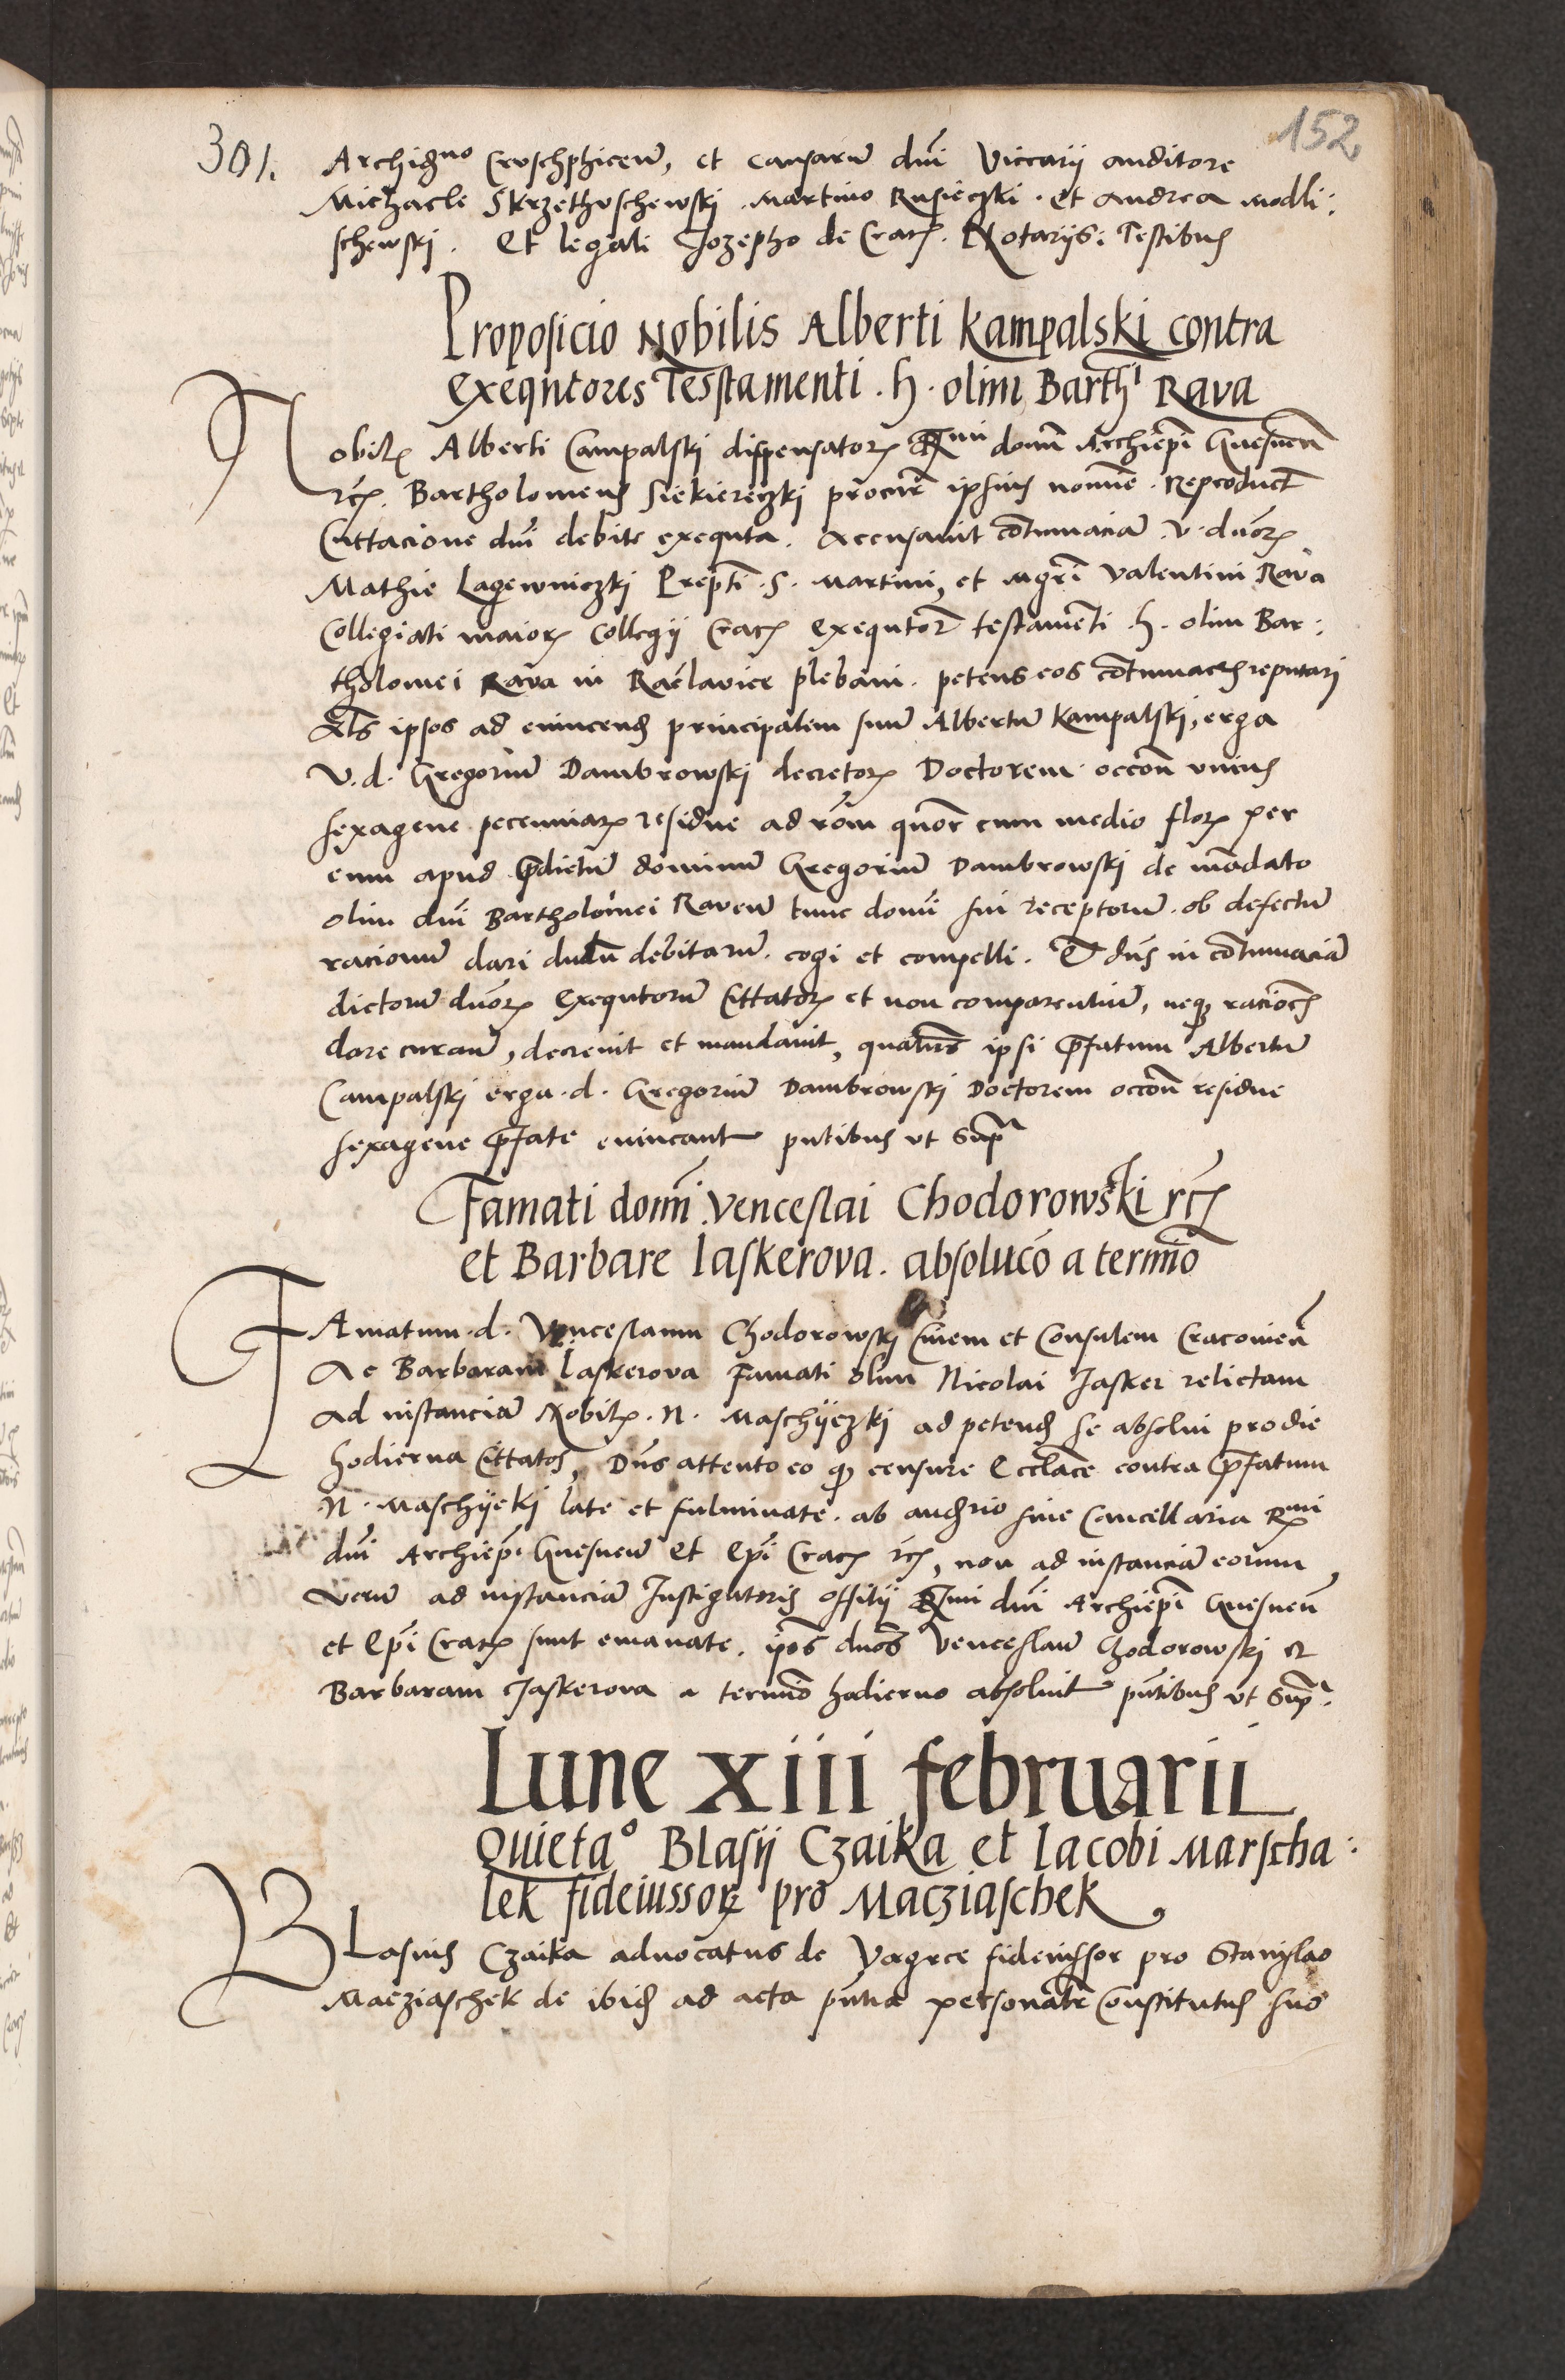 152
301. Archigno Cruschphiceñ, et causarū dn̄i Viccarii auditore
Michaele Skrzethuschewski . Martino Rusieczki . et Andrea Modli:
schewski . Et legali Jozepho de Crac̄ . Notariis : Testibus
Proposicio Nobilis Alberti Kampalski contra
exequutores Tesstamenti . h . olim Barthi Rava
Nobilis Alberti Campalski dispensatoris Rmi domi Archiepi Gnesnen̄
etc. Bartholomeus Siekiereczki procur̄ ipsius nomine . Reproduct̄
Cittacione dn̄i debite exequta . Accusavit cōtumaciā . V . dn̄or
Mathie Lagewniczki Prepti . S . Martini, et mgri Valentini Rava
Collegiati maioris Collegii Crac̄ exequtor̄ testamēti . h . olim Bar:
tholomei Rava in Raclavice plebani . petens eos cōtumaces reputari
Als ipsos ad evincend principalem suū Albertū Kampalski, erga
V . d . Gregoriū Dambrowski decretor Doctorem occōn unius
sexagene pecuniar residue ad rōm quor̄ cum medio flor per
eum apud p̄dictū dominū Gregoriū Dambrowski de mādato
olim dn̄i Bartholomei Raveū tunc domi sui receptorū . ob defectū
racionū dari debitarū . cogi et compelli . Et dn̄s in cōtumaciā
dictorū dn̄or exequtorū Cittator et non comparentiū, neq racioēs
dare curan̄, decrevit et mandavit, quatenus ipsi p̄fatum Albertū
Campalski erga . d . Gregoriū Dambrowski Doctorem occōn residue
sexagene p̄fate evincant pn̄tibus ut Supra
Famati domi Venceslai Chodorowski etc
et Barbare Iaskerova . absolucō a termīo
FAmatum . d . Venceslaum Chodorowski Civem et Consulem Cracovien̄
Ac Barbaram Iaskerova Famati olim Nicolai Jasker relictam
ad instanciā Nobilis . N . Maschijczki ad petend se absolvi pro die
hodierna Cittatos, Dn̄s attento eo q censure Ecclāce contra p̄fatum
N . Maschijcki late et fulminate . ab sive Cancellaria Rmi
dn̄i Archiepi Gnesneū et Epi Crac̄ etc, non ad instanciā eorum
verū ad instanciā Instigatoris Offitii Rmi dn̄i Archiepi Gnesneū
et Epi Crac̄ sunt emanate . ip̄os dn̄os Venceslaū Chodorowski et
Barbaram Jaskerova a termīo hodierno absolvit pn̄tibus ut Supra.
Lune xiii februarii
Quietaº Blasij Czaika et Iacobi Marscha:
lek fideiussor pro Macziaschek
BLasius Czaika advocatus de Vagrce fideiussor pro Stanislao
Macziaschek de ibid ad acta pn̄tia personalr̄ Constitutus suo